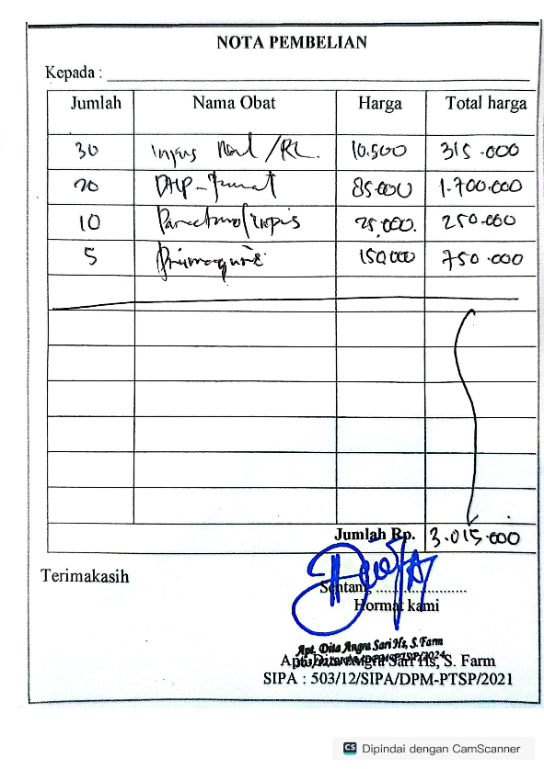 NOTA PEMBELIAN
Kepada :
Jumlah Nama Obat Harga Total harga
30 Infus /RL. 10.500 315.000
20 DHP- 85.000 1.700.000
10 25.000. 250.000
5 Primaquine 150.000 750.000
Jumlah Rp. 3.015.000
Terimakasih
Sentang ........................
Hormat kami
Apt. Dita Angra Sari Hs, S. Farm
Apt. Dita Angra Sari Hs, S. Farm
SIPA : 503/12/SIPA/DPM-PTSP/2021
CS Dipindai dengan CamScanner